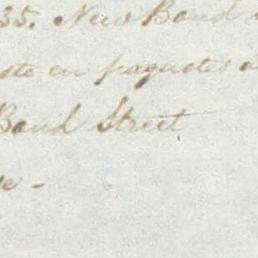 35. New Bond
en paquets
Bond Street